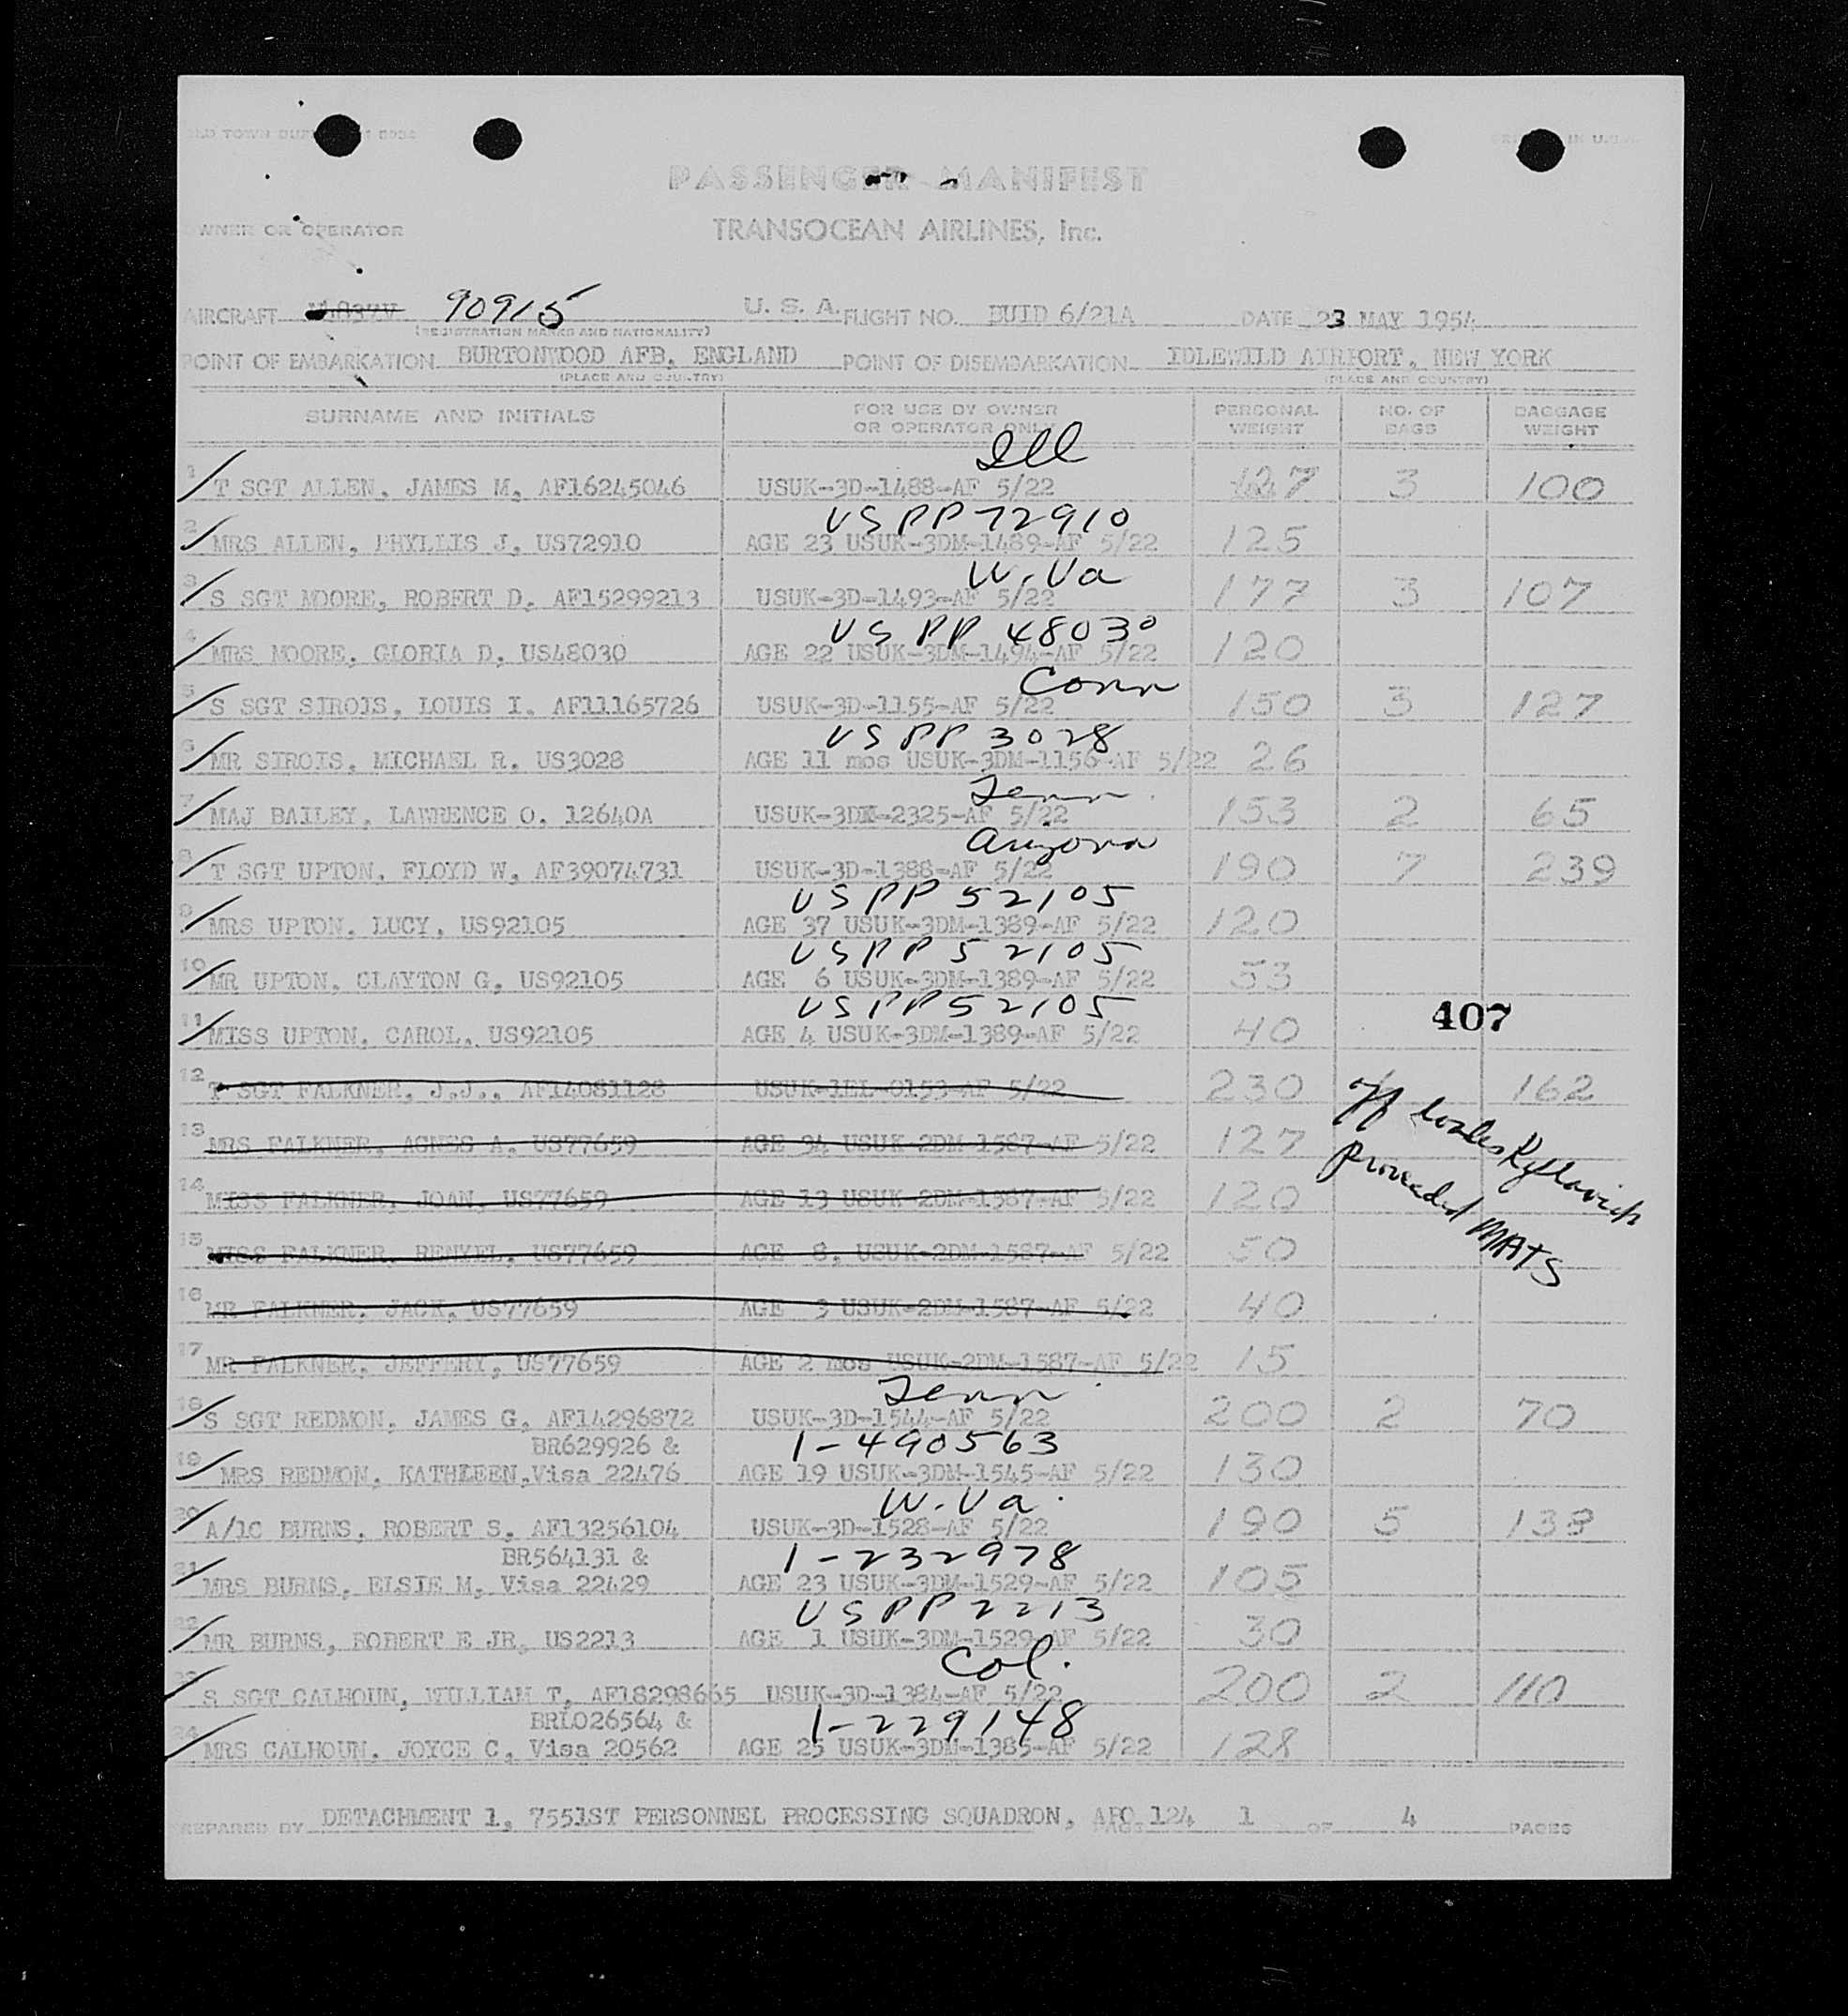 OLD TOWN
IN U.S.A.
PASSENGER MANIFEST
OWNER OR OPERATOR
TRANSOCEAN AIRLINES, Inc.
AIRCRAFT 90915 U. S. A. FLIGHT NO. BUID 6/21A DATE 23 MAY 1954
(REGISTRATION MARKS AND NATIONALITY)
POINT OF EMBARKATION BURTONWOOD AFB, ENGLAND POINT OF DISEMBARKATION IDLEWILD AIRPORT, NEW YORK
(PLACE AND COUNTRY) (PLACE AND COUNTRY)
SURNAME AND INITIALS FOR USE BY OWNER OR OPERATOR ONLY PERSONAL WEIGHT NO. OF BAGS BAGGAGE WEIGHT
Ill
1 T SGT ALLEN, JAMES M, AF16245046 USUK-3D-1488-AF 5/22 127 3 100
US PP 72910
2 MRS ALLEN, PHYLLIS J, US72910 AGE 23 USUK-3DM-1489-AF 5/22 125
W. Va
3 S SGT MOORE, ROBERT D, AF15299213 USUK-3D-1493-AF 5/22 177 3 107
US PP 48030
4 MRS MOORE, GLORIA D, US48030 AGE 22 USUK-3DM-1494-AF 5/22 120
Conn
5 S SGT SIROIS, LOUIS I, AF11165726 USUK-3D-1155-AF 5/22 150 3 127
US PP 3028
6 MR SIROIS, MICHAEL R. US3028 AGE 11 mos USUK-3DM-1156-AF 5/22 26
Tenn.
7 MAJ BAILEY, LAWRENCE O. 12640A USUK-3DM-2325-AF 5/22 153 2 65
Arizona
8 T SGT UPTON, FLOYD W, AF39074731 USUK-3D-1388-AF 5/22 190 7 239
US PP 52105
9 MRS UPTON, LUCY, US92105 AGE 37 USUK-3DM-1389-AF 5/22 120
US PP 52105
10 MR UPTON, CLAYTON G, US92105 AGE 6 USUK-3DM-1389-AF 5/22 53
US PP 52105
11 MISS UPTON, CAROL, US92105 AGE 4 USUK-3DM-1389-AF 5/22 40
407
12 T SGT FALKNER, J.J., AF14081128 USUK-1EL-0153-AF 5/22 230 162
13 MRS FALKNER, AGNES A. US77659 AGE 34 USUK-2DM-1587-AF 5/22 127
14 MISS FALKNER, JOAN, US77659 AGE 13 USUK-2DM-1587-AF 5/22 120
15 MISS FALKNER, US77659 AGE 8, USUK-2DM-1587-AF 5/22 50
16 MR FALKNER, JACK, US77659 AGE 3 USUK-2DM-1587-AF 5/22 40
17 MR FALKNER, JEFFERY, US77659 AGE 2 mos USUK-2DM-1587-AF 5/22 15
Off
MATS
Tenn.
18 S SGT REDMON, JAMES G, AF14296872 USUK-3D-1544-AF 5/22 200 2 70
BR629926 & 1-490563
19 MRS REDMON, KATHLEEN, Visa 22476 AGE 19 USUK-3DM-1545-AF 5/22 130
W. Va.
20 A/1C BURNS, ROBERT S, AF13256104 USUK-3D-1528-AF 5/22 190 5 138
BR564131 & 1-232978
21 MRS BURNS, ELSIE M, Visa 22429 AGE 23 USUK-3DM-1529-AF 5/22 105
US PP 2213
22 MR BURNS, ROBERT E JR, US2213 AGE 1 USUK-3DM-1529-AF 5/22 30
Col.
23 S SGT CALHOUN, WILLIAM T, AF18298665 USUK-3D-1384-AF 5/22 200 2 110
BRL026564 & 1-229148
24 MRS CALHOUN, JOYCE C, Visa 20562 AGE 25 USUK-3DM-1385-AF 5/22 128
PREPARED BY DETACHMENT 1, 7551ST PERSONNEL PROCESSING SQUADRON, APO 124 1 OF 4 PAGES